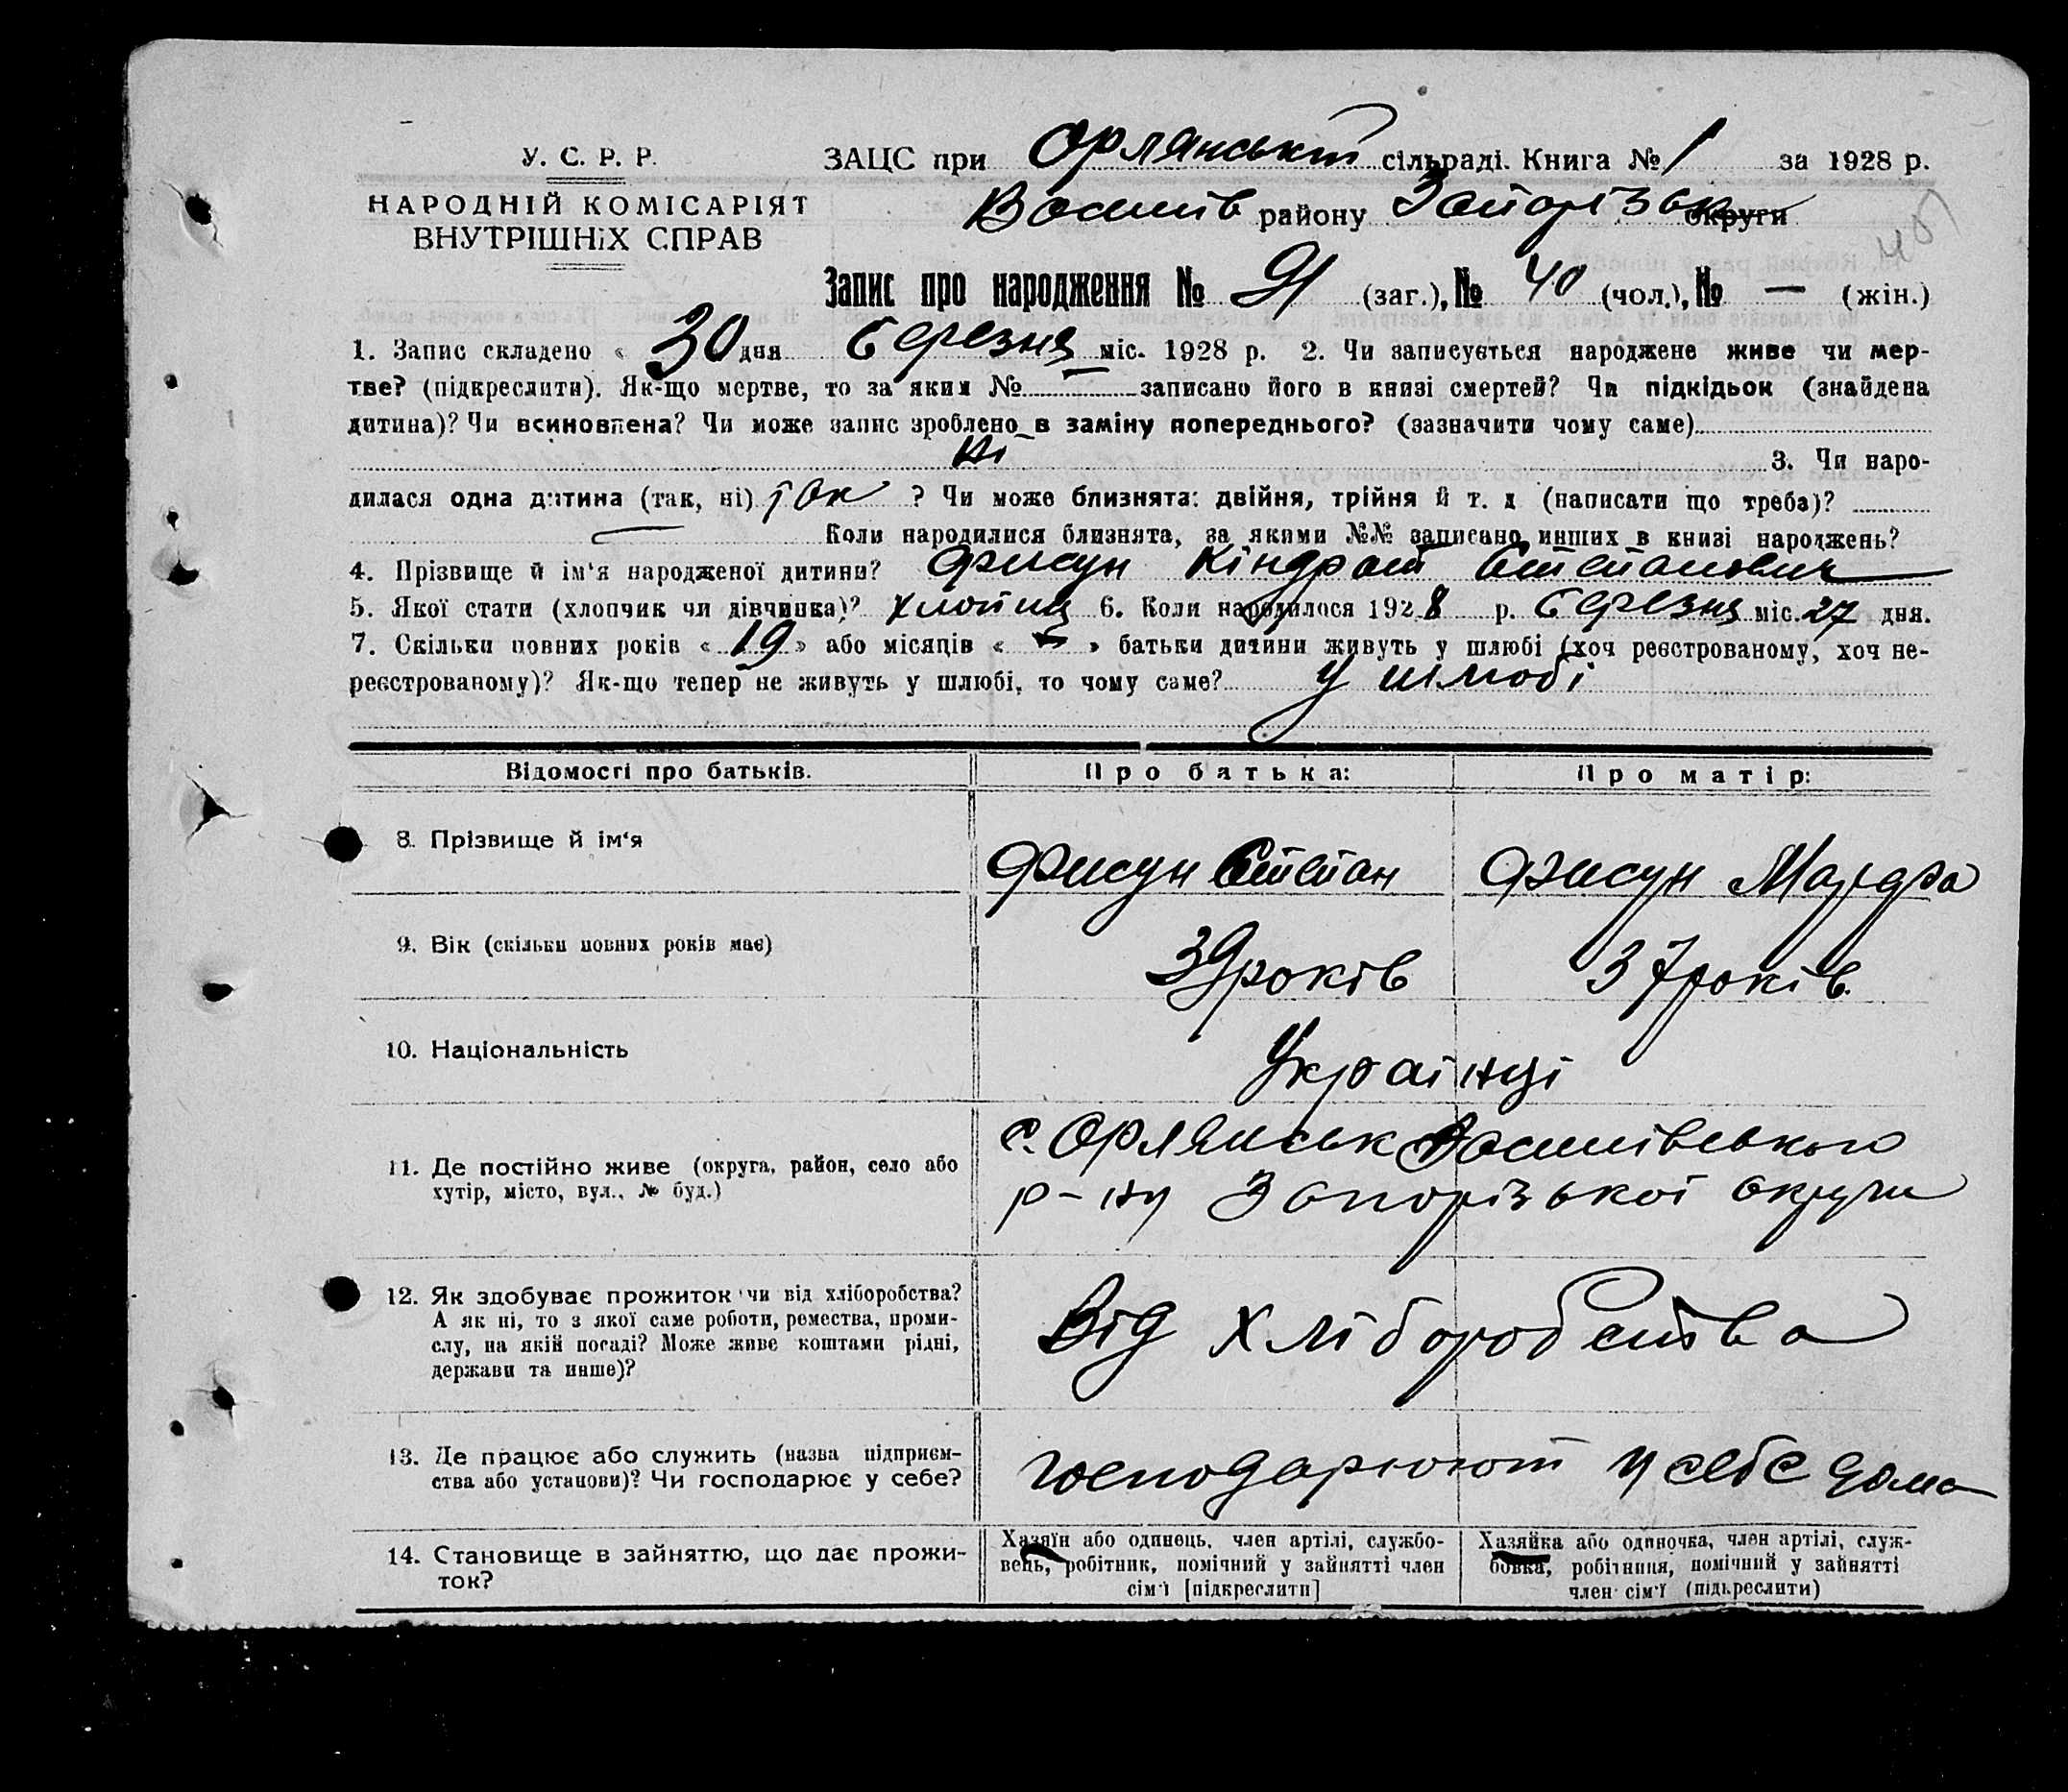 У. С. Р. Р.
НАРОДНІЙ КОМІСАРІЯТ
ВНУТРІШНіХ СПРАВ
ЗАЦС при Орлянській сільраді. Книга № 1 за 1928 р.
Василів району Запорізьк округи
Запис про народження № 91 (заг.), № 40 (чол.), № — (жін.)
1. Запис складено « 30 дня березня міс. 1928 р. 2. Чи записується народжене живе чи мер-
тве? (підкреслити). Як-що мертве, то за яким № — записано його в книзі смертей? Чи підкідьок (знайдена
дитина)? Чи всиновлена? Чи може запис зроблено в заміну попереднього? (зазначити чому саме)
Ні 3. Чи наро-
дилася одна дитина (так, ні) так ? Чи може близнята: двійня, трійня й т. д (написати що треба)?
— Коли народилися близнята, за якими №№ записано инших в книзі народжень?
4. Прізвище й ім'я народженої дитини? Фисун Кіндрат Степанович
5. Якої стати (хлопчик чи дівчинка)? хлопец 6. Коли народилося 1928 р. березня міс. 27 дня.
7. Скільки повних років « 19 » або місяців « — » батьки дитини живуть у шлюбі (хоч реєстрованому, хоч не-
реєстрованому)? Як-що тепер не живуть у шлюбі, то чому саме? у шлюбі
Відомості про батьків. Про батька: Про матір:
8. Прізвище й ім'я Фисун Степан Фисун Марфа
9. Вік (скільки повних років має) 39 років 37 років.
10. Національність Українці
11. Де постійно живе (округа, район, село або
хутір, місто, вул., № буд.)
с. Орлянськ Василівського
р-ну Запорізької округи
12. Як здобуває прожиток чи від хліборобства?
А як ні, то з якої саме роботи, ремества, проми-
слу, на якій посаді? Може живе коштами рідні,
держави та инше)?
Від хліборобства
13. Де працює або служить (назва підприєм-
ства або установи)? Чи господарює у себе?
господарюют у себе дома
14. Становище в зайняттю, що дає прожи-
ток?
Хазяїн або одинець, член артілі, службо-
вець, робітник, помічний у зайнятті член
сім'ї [підкреслити]
Хазяйка або одиночка, член артілі, служ-
бовка, робітниця, помічний у зайнятті
член сім'ї (підкреслити)